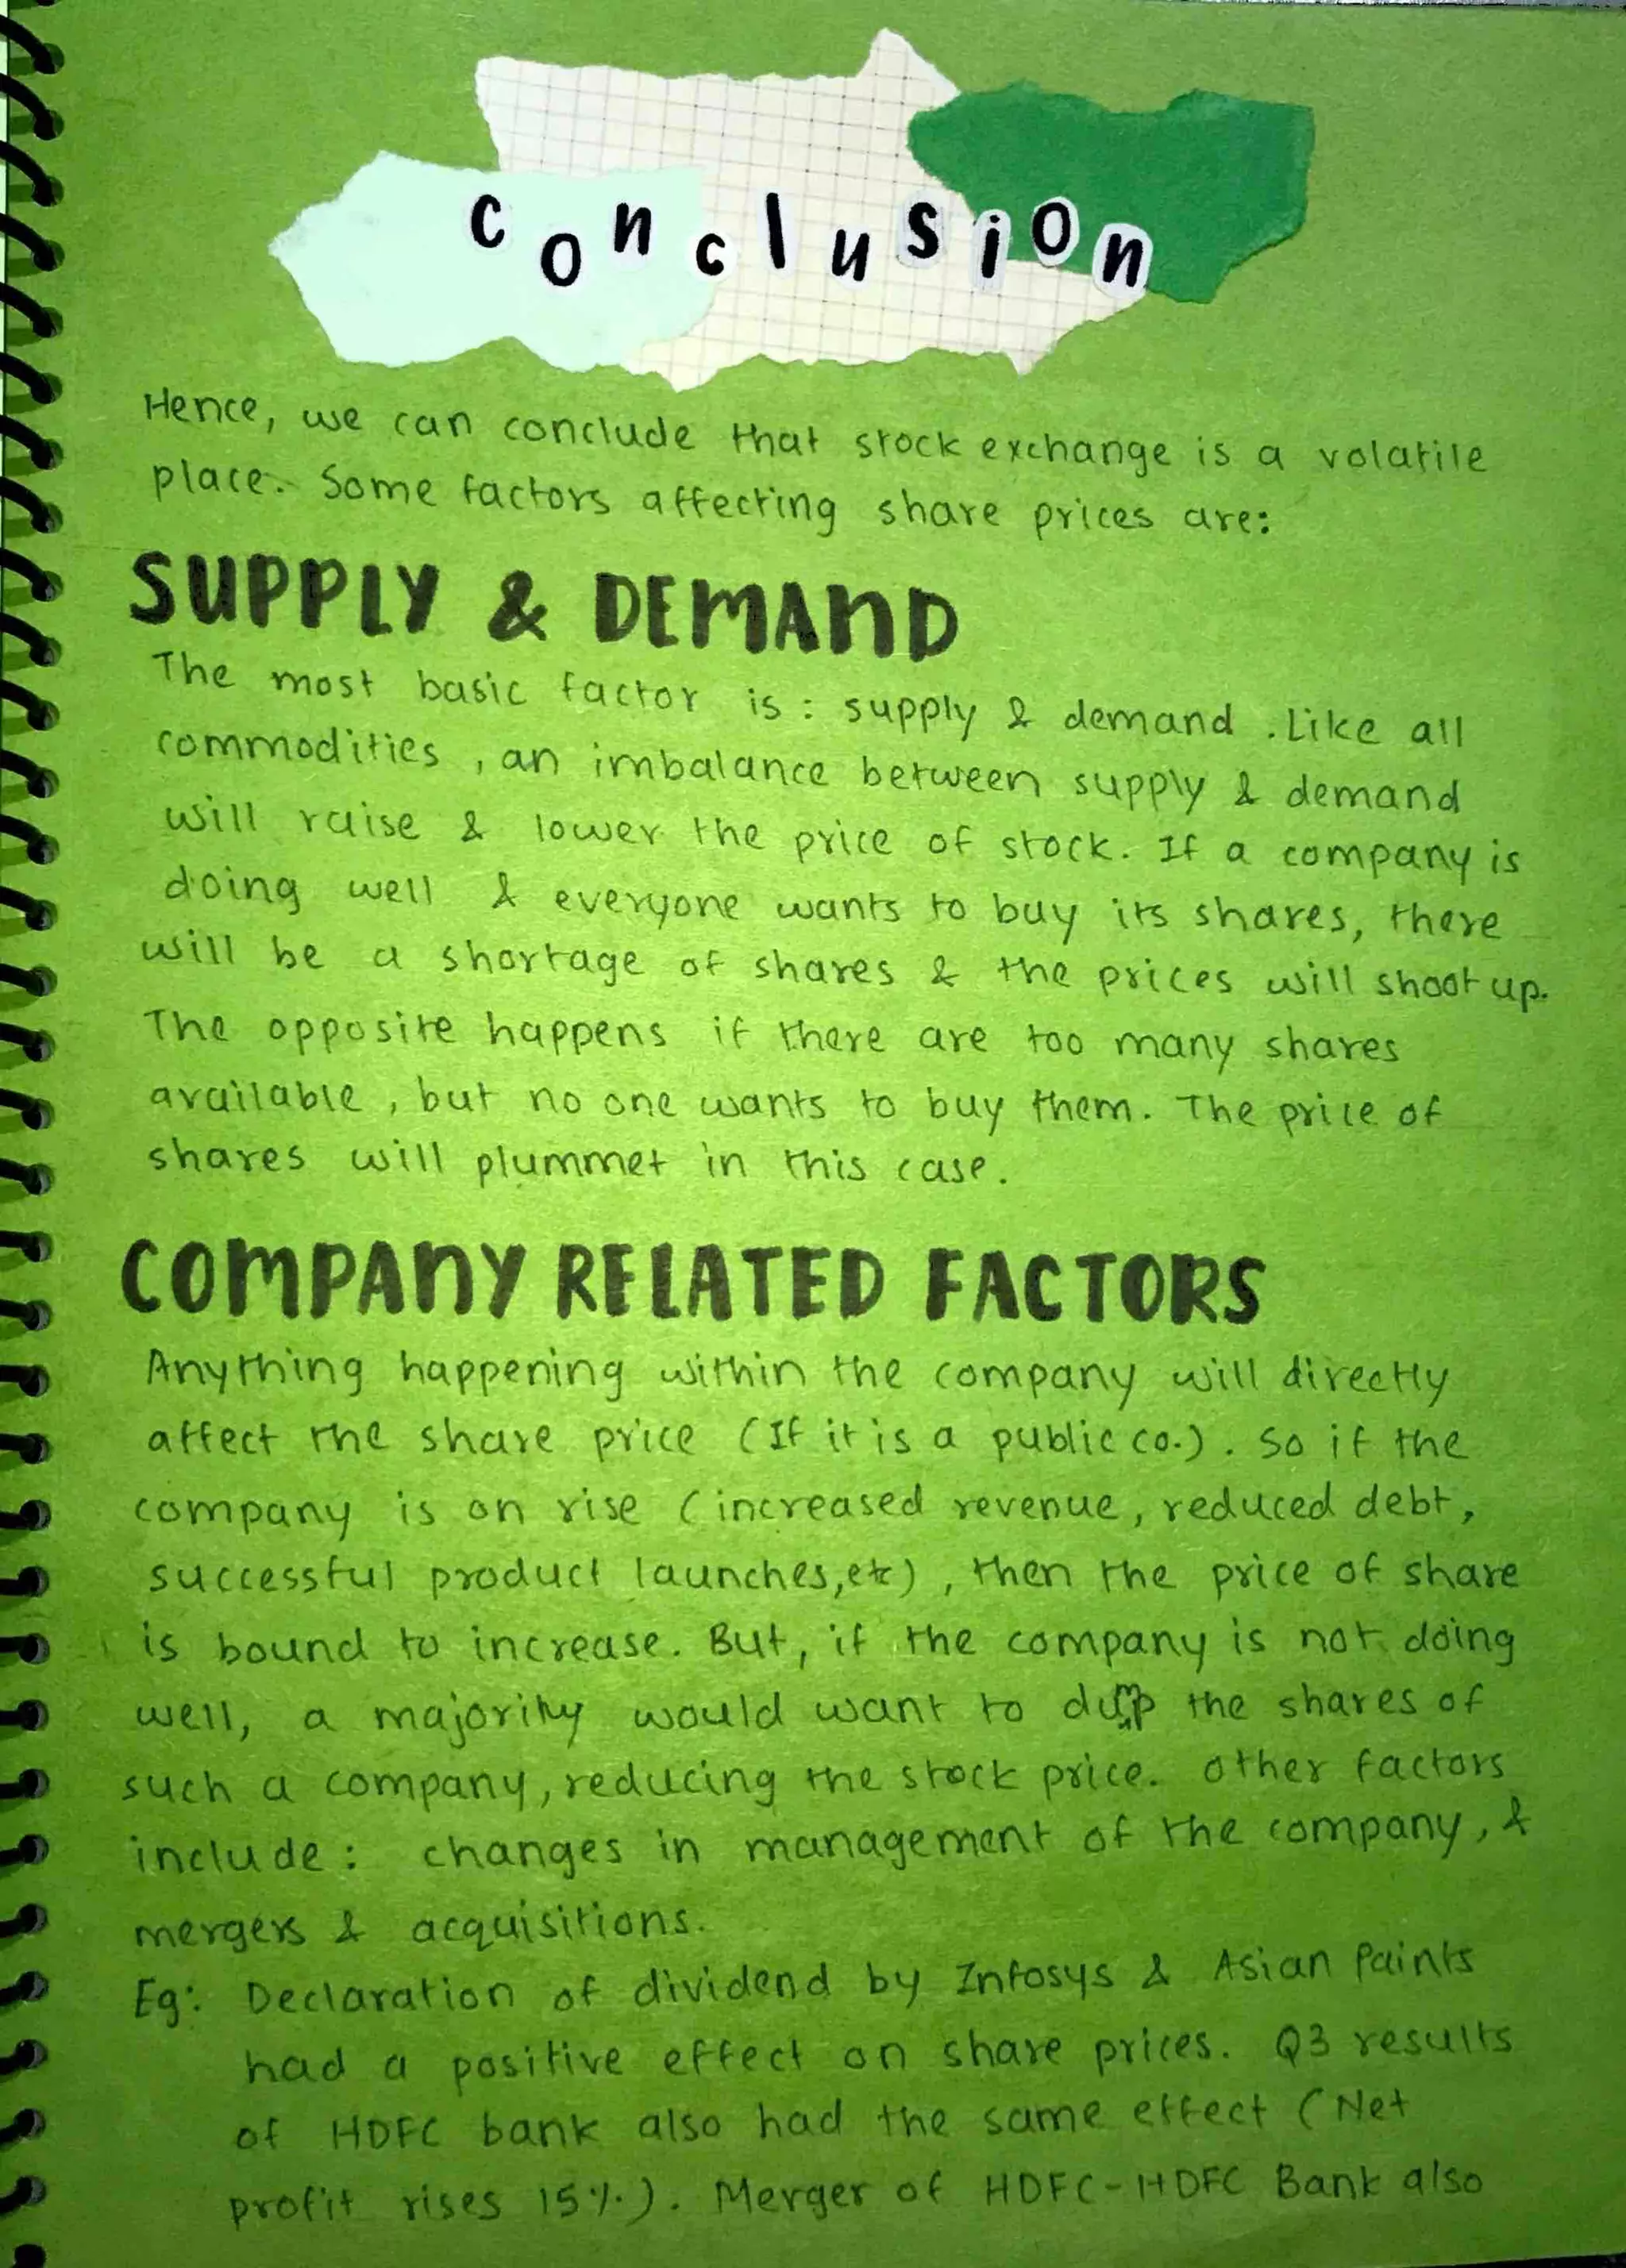 conclusion
Hence, we can conclude that stock exchange is a volatile
place. Some factors affecting share prices are:
SUPPLY & DEMAND
The most basic factor is : supply & demand . Like all
commodities , an imbalance between supply & demand
will raise & lower the price of stock. If a company is
doing well & everyone wants to buy its shares, there
will be a shortage of shares & the prices will shoot up.
The opposite happens if there are too many shares
available , but no one wants to buy them. The price of
shares will plummet in this case.
COMPANY RELATED FACTORS
Anything happening within the company will directly
affect the share price (If it is a public co.). So if the
company is on rise (increased revenue, reduced debt,
successful product launches,etc) , then the price of share
is bound to increase. But, if the company is not doing
well, a majority would want to dump the shares of
such a company, reducing the stock price. Other factors
include : changes in management of the company, &
mergers & acquisitions.
Eg: Declaration of dividend by Infosys & Asian Paints
had a positive effect on share prices. Q3 results
of HDFC bank also had the same effect (Net
profit rises 15%). Merger of HDFC-HDFC Bank also